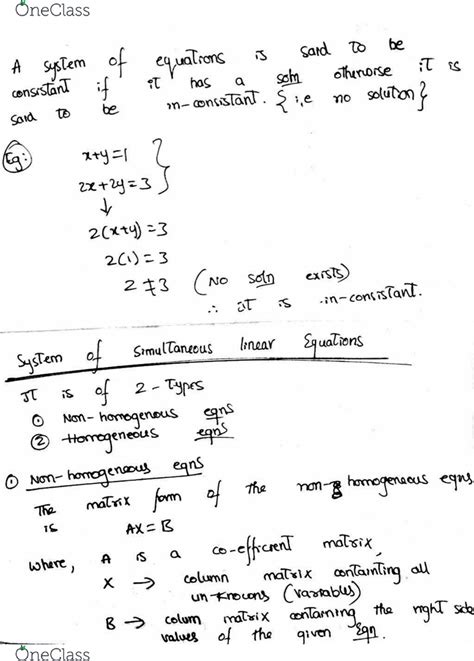 OneClass
A system of equations is said to be
consistant if it has a soln otherwise it is
said to be in-consistant. {i,e no solution}
Eg:
x+y=1
2x+2y=3
↓
2(x+y)=3
2(1)=3
2≠3 (No soln exists)
∴ it is in-consistant.
System of simultaneous linear Equations
It is of 2-Types
① Non-homogenous eqns
② Homogeneous eqns
① Non-homogeneous eqns
The matrix form of the non-homogeneous eqns
is AX=B
where, A is a co-efficient matrix,
X → column matrix containting all
un-knowns (variables)
B → colum matrix containing the right side
values of the given Eqn.
OneClass